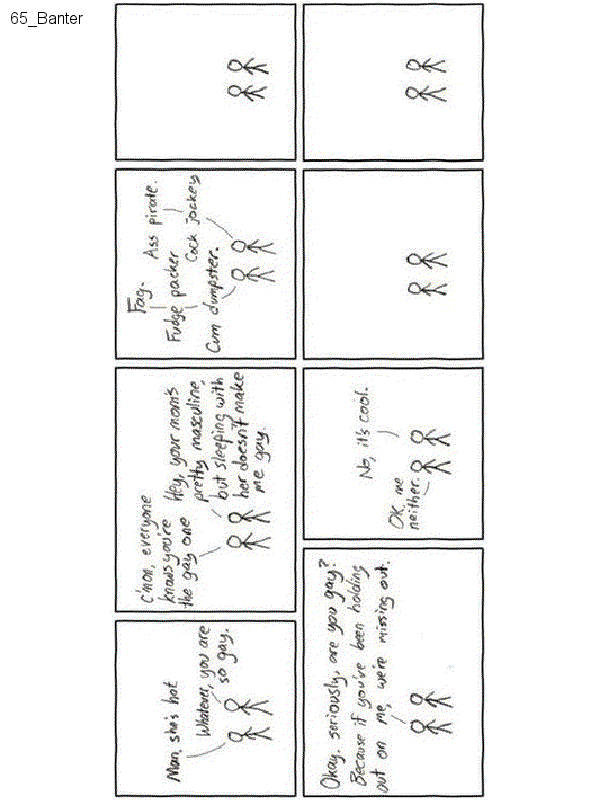 65_Banter
Man, she's hot
Whatever, you are
so gay.
C'mon, everyone
knows you're
the gay one
Hey, your mom's
pretty masculine,
but sleeping with
her doesn't make
me gay.
Fag.
Ass pirate.
Fudge packer
Cock jockey
Cum dumpster.
Okay, seriously, are you gay?
Because if you've been holding
out on me, we're missing out.
No, it's cool.
OK, me
neither.